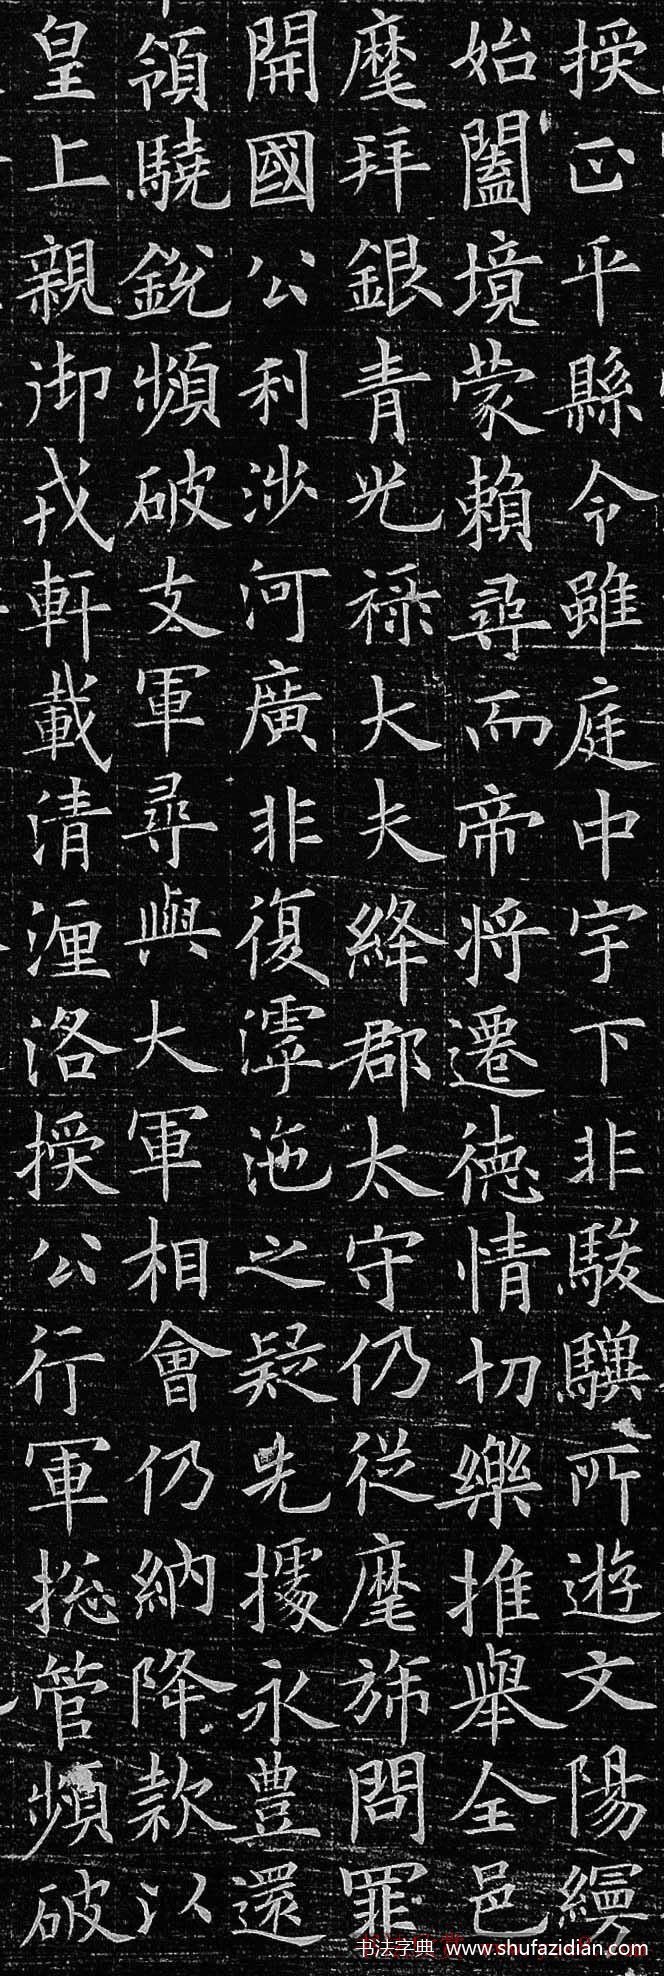 授正平縣令雖庭中宇下非駿驥所遊文陽
始闔境蒙賴尋而帝將遷德情切樂推舉全邑
麾拜銀青光祿大夫絳郡太守仍從麾旆問罪
開國公利涉河廣非復滹沲之疑先據永豊還
領驍銳頻破支軍尋與大軍相會仍納降款以
皇上親御戎軒載清瀍洛授公行軍揔管頻破
书法字典 www.shufazidian.com